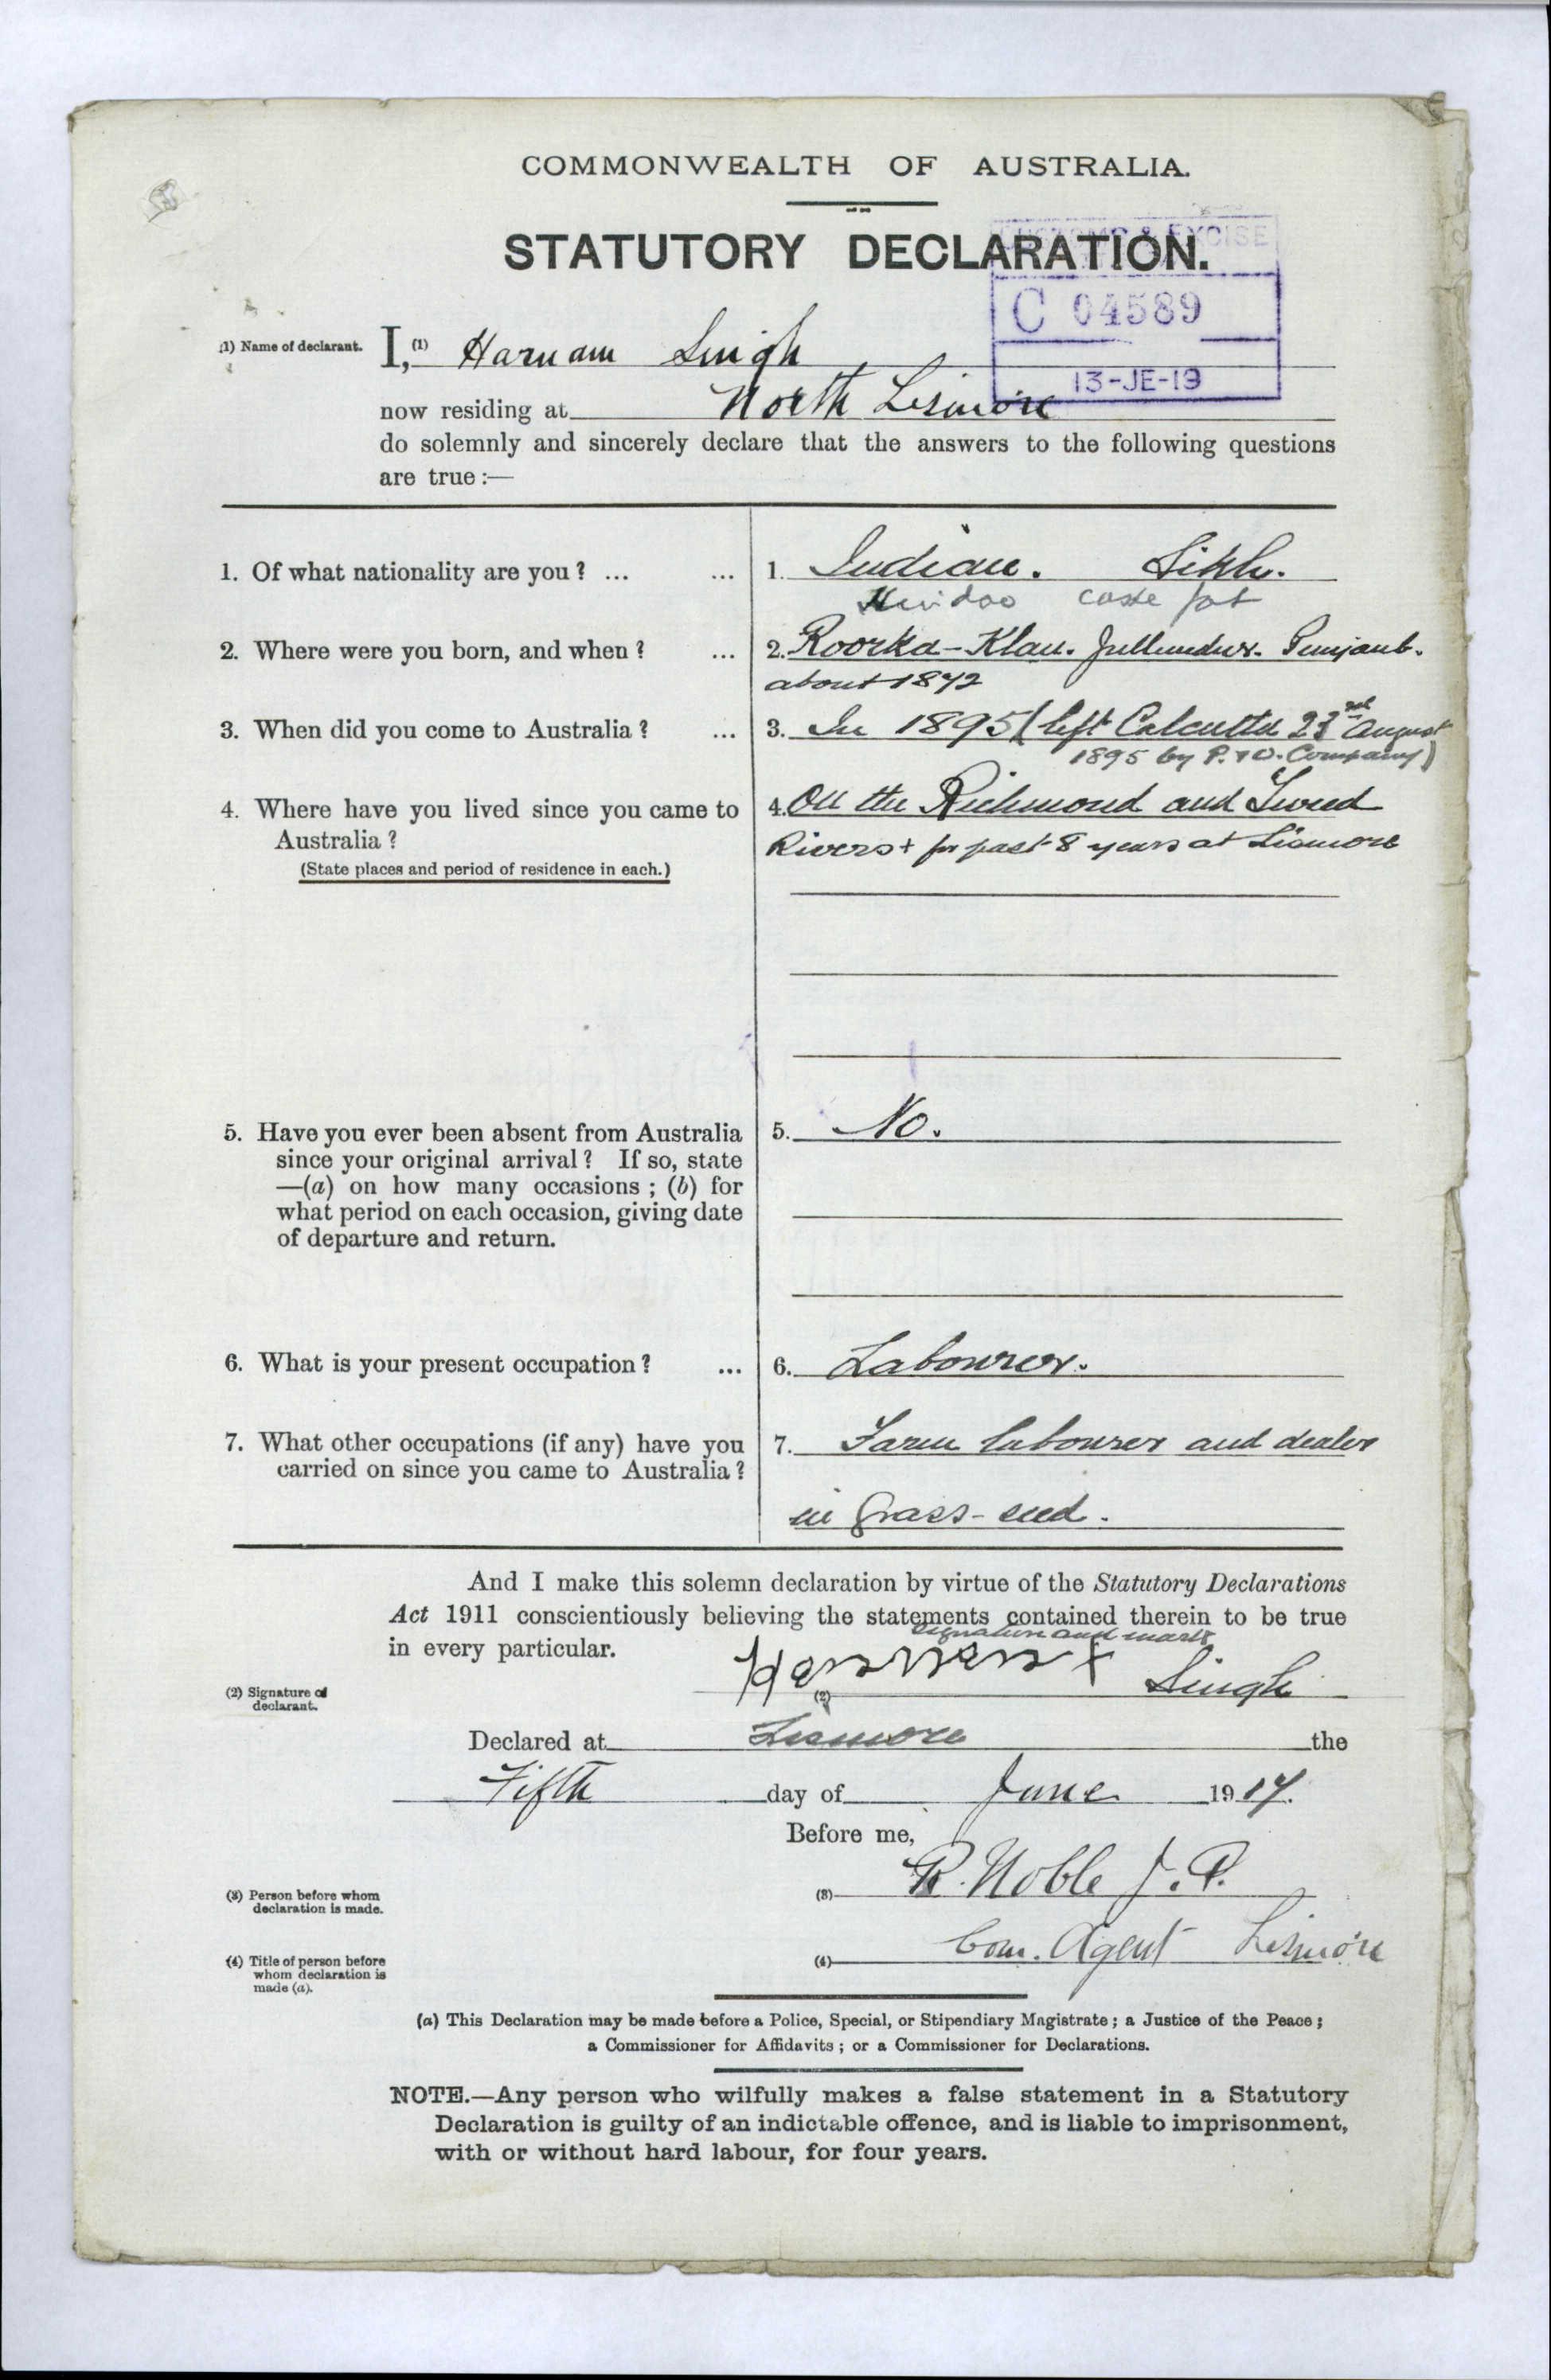 COMMONWEALTH OF AUSTRALIA.
STATUTORY DECLARATION.
CUSTOMS & EXCISE
C 04589
13-JE-19
(1) Name of declarant.
I, (1) Harnam Singh
now residing at North Lismore
do solemnly and sincerely declare that the answers to the following questions
are true :—
1. Of what nationality are you ? ... ...
1. Indian. Sikh.
Hindoo caste Jat
2. Where were you born, and when ? ...
2. Roorka-Klan. Jullundur. Punjaub.
about 1872
3. When did you come to Australia ? ...
3. In 1895 (left Calcutta 23rd August
1895 by P. & O. Company)
4. Where have you lived since you came to
Australia ?
(State places and period of residence in each.)
4. On the Richmond and Tweed
Rivers + for past 8 years at Lismore
5. Have you ever been absent from Australia
since your original arrival ? If so, state
—(a) on how many occasions ; (b) for
what period on each occasion, giving date
of departure and return.
5. No.
6. What is your present occupation ? ...
6. Labourer.
7. What other occupations (if any) have you
carried on since you came to Australia ?
7. Farm labourer and dealer
in Grass-seed.
And I make this solemn declaration by virtue of the Statutory Declarations
Act 1911 conscientiously believing the statements contained therein to be true
in every particular.
signature and mark
(2) Signature of
declarant.
(2) Harnam x Singh
Declared at Lismore the
Fifth day of June 1917.
Before me,
(3) Person before whom
declaration is made.
(3) R. Noble J.P.
(4) Title of person before
whom declaration is
made (a).
(4) Com. Agent Lismore
(a) This Declaration may be made before a Police, Special, or Stipendiary Magistrate ; a Justice of the Peace ;
a Commissioner for Affidavits ; or a Commissioner for Declarations.
NOTE.—Any person who wilfully makes a false statement in a Statutory
Declaration is guilty of an indictable offence, and is liable to imprisonment,
with or without hard labour, for four years.